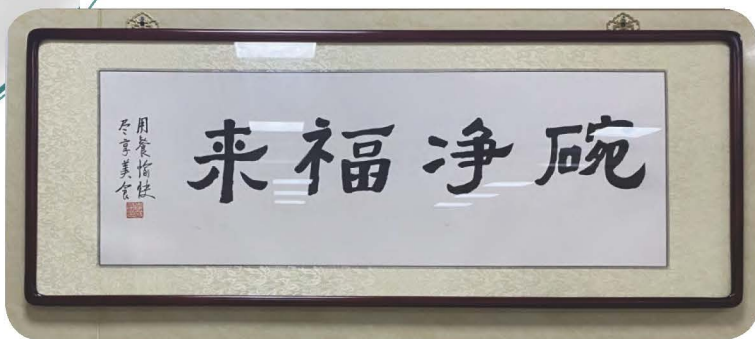 碗净福来
用餐愉快
尽享美食